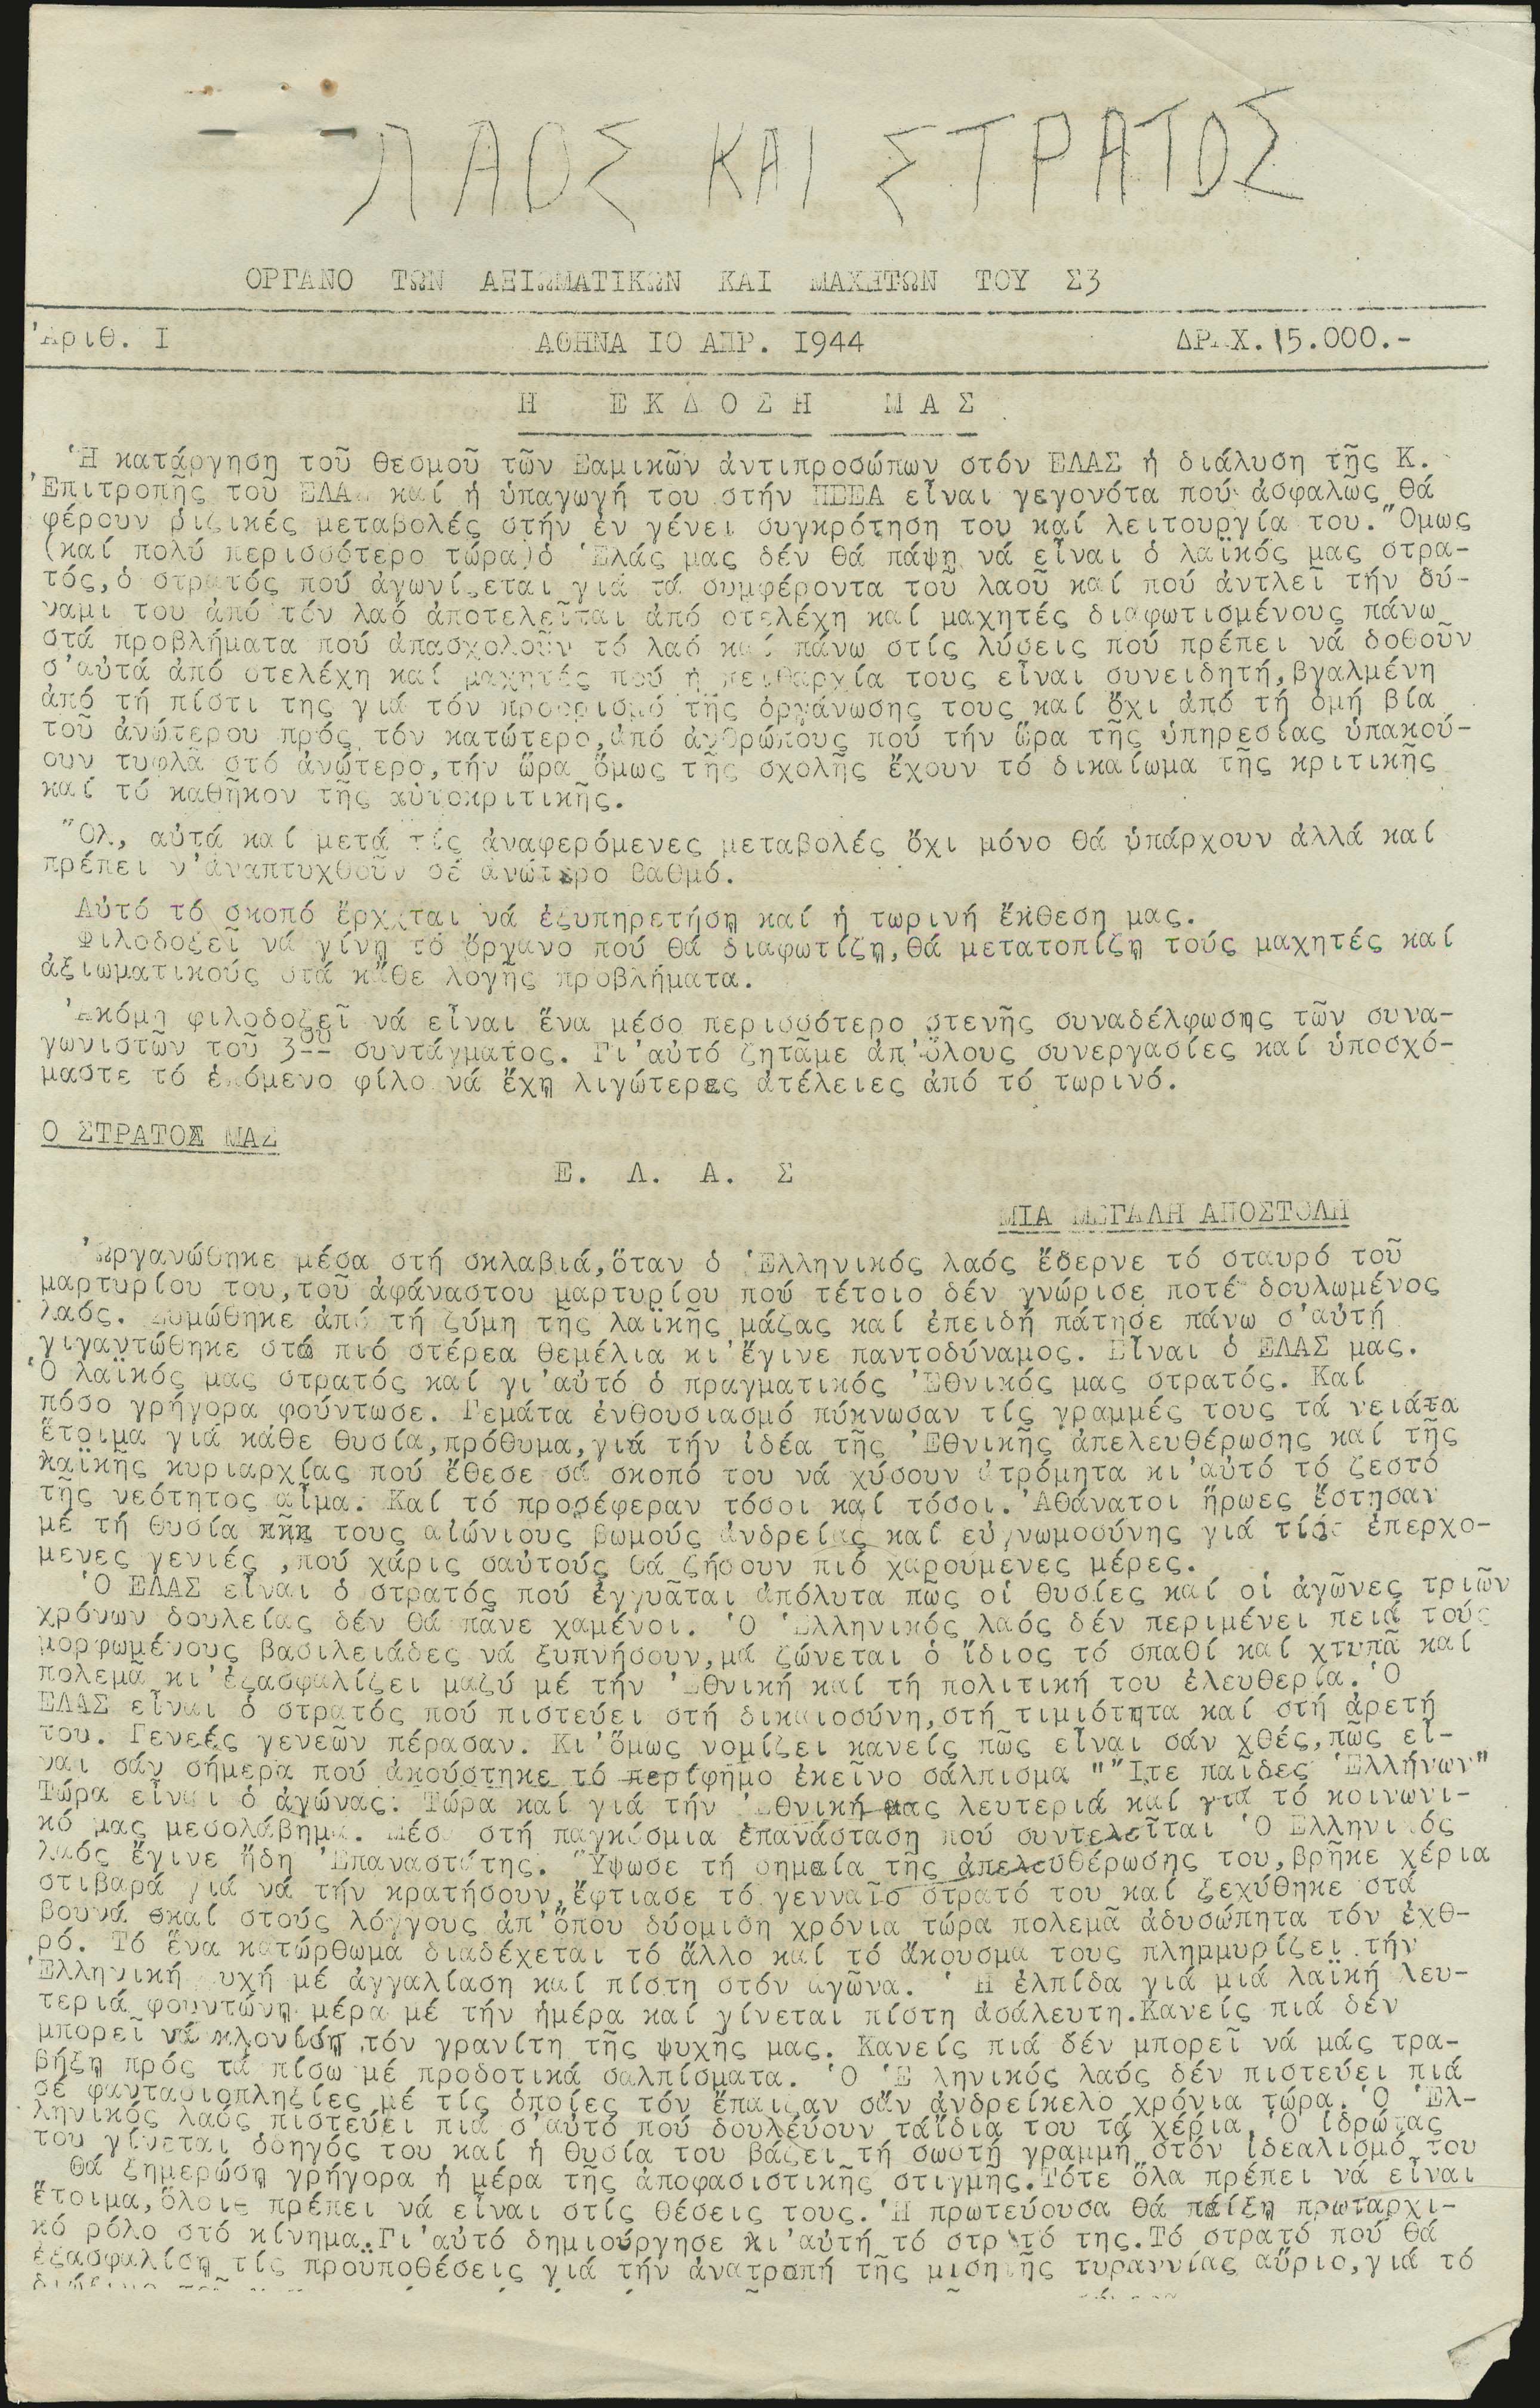 ΛΑΟΣ ΚΑΙ ΣΤΡΑΤΟΣ
ΟΡΓΑΝΟ ΤΩΝ ΑΞΙΩΜΑΤΙΚΩΝ ΚΑΙ ΜΑΧΗΤΩΝ ΤΟΥ Σ3
Ἀριθ. Ι ΑΘΗΝΑ ΙΟ ΑΠΡ. Ι944 ΔΡΑΧ. 15.000.-
Η ΕΚΔΟΣΗ ΜΑΣ
Ἡ κατάργηση τοῦ θεσμοῦ τῶν Εαμικῶν ἀντιπροσώπων στόν ΕΛΑΣ ἡ διάλυση τῆς Κ.
Ἐπιτροπῆς τοῦ ΕΛΑΣ καί ἡ ὑπαγωγή του στήν ΠΕΕΑ εἶναι γεγονότα πού ἀσφαλῶς θά
φέρουν ριζικές μεταβολές στήν ἐν γένει συγκρότηση του καί λειτουργία του. Ὅμως
(καί πολύ περισσότερο τώρα)ὁ Ἑλάς μας δέν θά πάψῃ νά εἶναι ὁ λαϊκός μας στρα-
τός,ὁ στρατός πού ἀγωνίζεται γιά τά συμφέροντα τοῦ λαοῦ καί πού ἀντλεῖ τήν δύ-
ναμι του ἀπό τόν λαό ἀποτελεῖται ἀπό στελέχη καί μαχητές διαφωτισμένους πάνω
στά προβλήματα πού ἀπασχολοῦν τό λαό καί πάνω στίς λύσεις πού πρέπει νά δοθοῦν
σ'αὐτά ἀπό στελέχη καί μαχητές πού ἡ πειθαρχία τους εἶναι συνειδητή,βγαλμένη
ἀπό τή πίστι της γιά τόν προορισμό τῆς ὀργάνωσης τους καί ὄχι ἀπό τή ὀμή βία
τοῦ ἀνώτερου πρός τόν κατώτερο,ἀπό ἀνθρώπους πού τήν ὥρα τῆς ὑπηρεσίας ὑπακού-
ουν τυφλᾶ στό ἀνώτερο,τήν ὥρα ὅμως τῆς σχολῆς ἔχουν τό δικαίωμα τῆς κριτικῆς
καί τό καθῆκον τῆς αὐτοκριτικῆς.
Ὅλ, αὐτά καί μετά τίς ἀναφερόμενες μεταβολές ὄχι μόνο θά ὑπάρχουν ἀλλά καί
πρέπει ν'ἀναπτυχθοῦν σέ ἀνώτερο βαθμό.
Αὐτό τό σκοπό ἔρχεται νά ἐξυπηρετήσῃ καί ἡ τωρινή ἔκθεση μας.
Φιλοδοξεῖ νά γίνῃ τό ὄργανο πού θά διαφωτίζῃ,θά μετατοπίζῃ τούς μαχητές καί
ἀξιωματικούς στά κἄθε λογῆς προβλήματα.
Ἀκόμη φιλοδοξεῖ νά εἶναι ἕνα μέσο περισσότερο στενῆς συναδέλφωσης τῶν συνα-
γωνιστῶν τοῦ 3ου συντάγματος. Γι'αὐτό ζητᾶμε ἀπ'ὅλους συνεργασίες καί ὑποσχό-
μαστε τό ἑπόμενο φίλο νά ἔχῃ λιγώτερες ἀτέλειες ἀπό τό τωρινό.
Ο ΣΤΡΑΤΟΣ ΜΑΣ
Ε. Λ. Α. Σ
ΜΙΑ ΜΕΓΑΛΗ ΑΠΟΣΤΟΛΗ
Ὠργανώθηκε μέσα στή σκλαβιά,ὅταν ὁ Ἑλληνικός λαός ἔσερνε τό σταυρό τοῦ
μαρτυρίου του,τοῦ ἀφάναστου μαρτυρίου πού τέτοιο δέν γνώρισε ποτέ δουλωμένος
λαός. Ζυμώθηκε ἀπό τή ζύμη τῆς λαϊκῆς μάζας καί ἐπειδή πάτησε πάνω σ'αὐτή
γιγαντώθηκε στά πιό στέρεα θεμέλια κι'ἔγινε παντοδύναμος. Εἶναι ὁ ΕΛΑΣ μας.
Ὁ λαϊκός μας στρατός καί γι'αὐτό ὁ πραγματικός Ἐθνικός μας στρατός. Καί
πόσο γρήγορα φούντωσε. Γεμάτα ἐνθουσιασμό πύκνωσαν τίς γραμμές τους τά νειάτα
ἕτοιμα γιά κάθε θυσία,πρόθυμα,γιά τήν ἰδέα τῆς Ἐθνικῆς ἀπελευθέρωσης καί τῆς
καϊκῆς κυριαρχίας πού ἔθεσε σά σκοπό του νά χύσουν ἀτρόμητα κι'αὐτό τό ζεστό
τῆς νεότητος αἷμα. Καί τό προσέφεραν τόσοι καί τόσοι. Ἀθάνατοι ἥρωες ἔστησαν
μέ τή θυσία τους αἰώνιους βωμούς ἀνδρείας καί εὐγνωμοσύνης γιά τίς ἐπερχο-
μενες γενιές ,πού χάρις σαὐτούς θά ζήσουν πιό χαρούμενες μέρες.
Ὁ ΕΛΑΣ εἶναι ὁ στρατός πού ἐγγυᾶται ἀπόλυτα πῶς οἱ θυσίες καί οἱ ἀγῶνες τριῶν
χρόνων δουλείας δέν θά πᾶνε χαμένοι. Ὁ Ἑλληνικός λαός δέν περιμένει πειά τούς
μορφωμένους βασιλειάδες νά ξυπνήσουν,μά ζώνεται ὁ ἴδιος τό σπαθί καί χτυπᾶ καί
πολεμᾶ κι'ἐξασφαλίζει μαζύ μέ τήν Ἐθνική καί τή πολιτική του ἐλευθερία. Ὁ
ΕΛΑΣ εἶναι ὁ στρατός πού πιστεύει στή δικαιοσύνη,στή τιμιότητα καί στή ἀρετή
του. Γενεές γενεῶν πέρασαν. Κι'ὅμως νομίζει κανείς πῶς εἶναι σάν χθές,πῶς εἶ-
ναι σάν σήμερα πού ἀκούστηκε τό περίφημο ἐκεῖνο σάλπισμα "Ἴτε παῖδες Ἑλλήνων"
Τώρα εἶναι ὁ ἀγώνας. Τώρα καί γιά τήν Ἐθνική μας λευτεριά καί γιά τό κοινωνι-
κό μας μεσολάβημα. Μέσα στή παγκόσμια ἐπανάσταση πού συντελεῖται Ὁ Ελληνικός
λαός ἔγινε ἤδη Ἐπαναστάτης. Ὕψωσε τή σημαία τῆς ἀπελευθέρωσης του,βρῆκε χέρια
στιβαρά γιά νά τήν κρατήσουν,ἔφτιασε τό γενναῖο στρατό του καί ξεχύθηκε στά
βουνά καί στούς λόγγους ἀπ'ὅπου δύομιση χρόνια τώρα πολεμᾶ ἀδυσώπητα τόν ἐχθ-
ρό. Τό ἕνα κατώρθωμα διαδέχεται τό ἄλλο καί τό ἄκουσμα τους πλημμυρίζει τήν
Ἑλληνική ψυχή μέ ἀγγαλίαση καί πίστη στόν ἀγῶνα. Ἡ ἐλπίδα γιά μιά λαϊκή λευ-
τεριά φουντώνῃ μέρα μέ τήν ἡμέρα καί γίνεται πίστη ἀσάλευτη.Κανείς πιά δέν
μπορεῖ νά κλονίσῃ τόν γρανίτη τῆς ψυχῆς μας. Κανείς πιά δέν μπορεῖ νά μάς τρα-
βήξῃ πρός τά πίσω μέ προδοτικά σαλπίσματα. Ὁ Ἑ ληνικός λαός δέν πιστεύει πιά
σέ φαντασιοπληξίες μέ τίς ὁποίες τόν ἔπαιζαν σᾶν ἀνδρείκελο χρόνια τώρα. Ὁ Ἑλ-
ληνικός λαός πιστεύει πιά σ'αὐτό πού δουλεύουν τάἴδια του τά χέρια. Ὁ ἱδρώτας
του γίνεται ὁδηγός του καί ἡ θυσία του βάζει τή σωστή γραμμή στόν ἰδεαλισμό του
Θά ξημερώσῃ γρήγορα ἡ μέρα τῆς ἀποφασιστικῆς στιγμῆς.Τότε ὅλα πρέπει νά εἶναι
ἕτοιμα,ὅλοι πρέπει νά εἶναι στίς θέσεις τους. Ἡ πρωτεύουσα θά παίξῃ πρωταρχι-
κό ρόλο στό κίνημα.Γι'αὐτό δημιούργησε κι'αὐτή τό στρατό της.Τό στρατό πού θά
ἐξασφαλίσῃ τίς προϋποθέσεις γιά τήν ἀνατροπή τῆς μισητῆς τυραννίας αὔριο,γιά τό